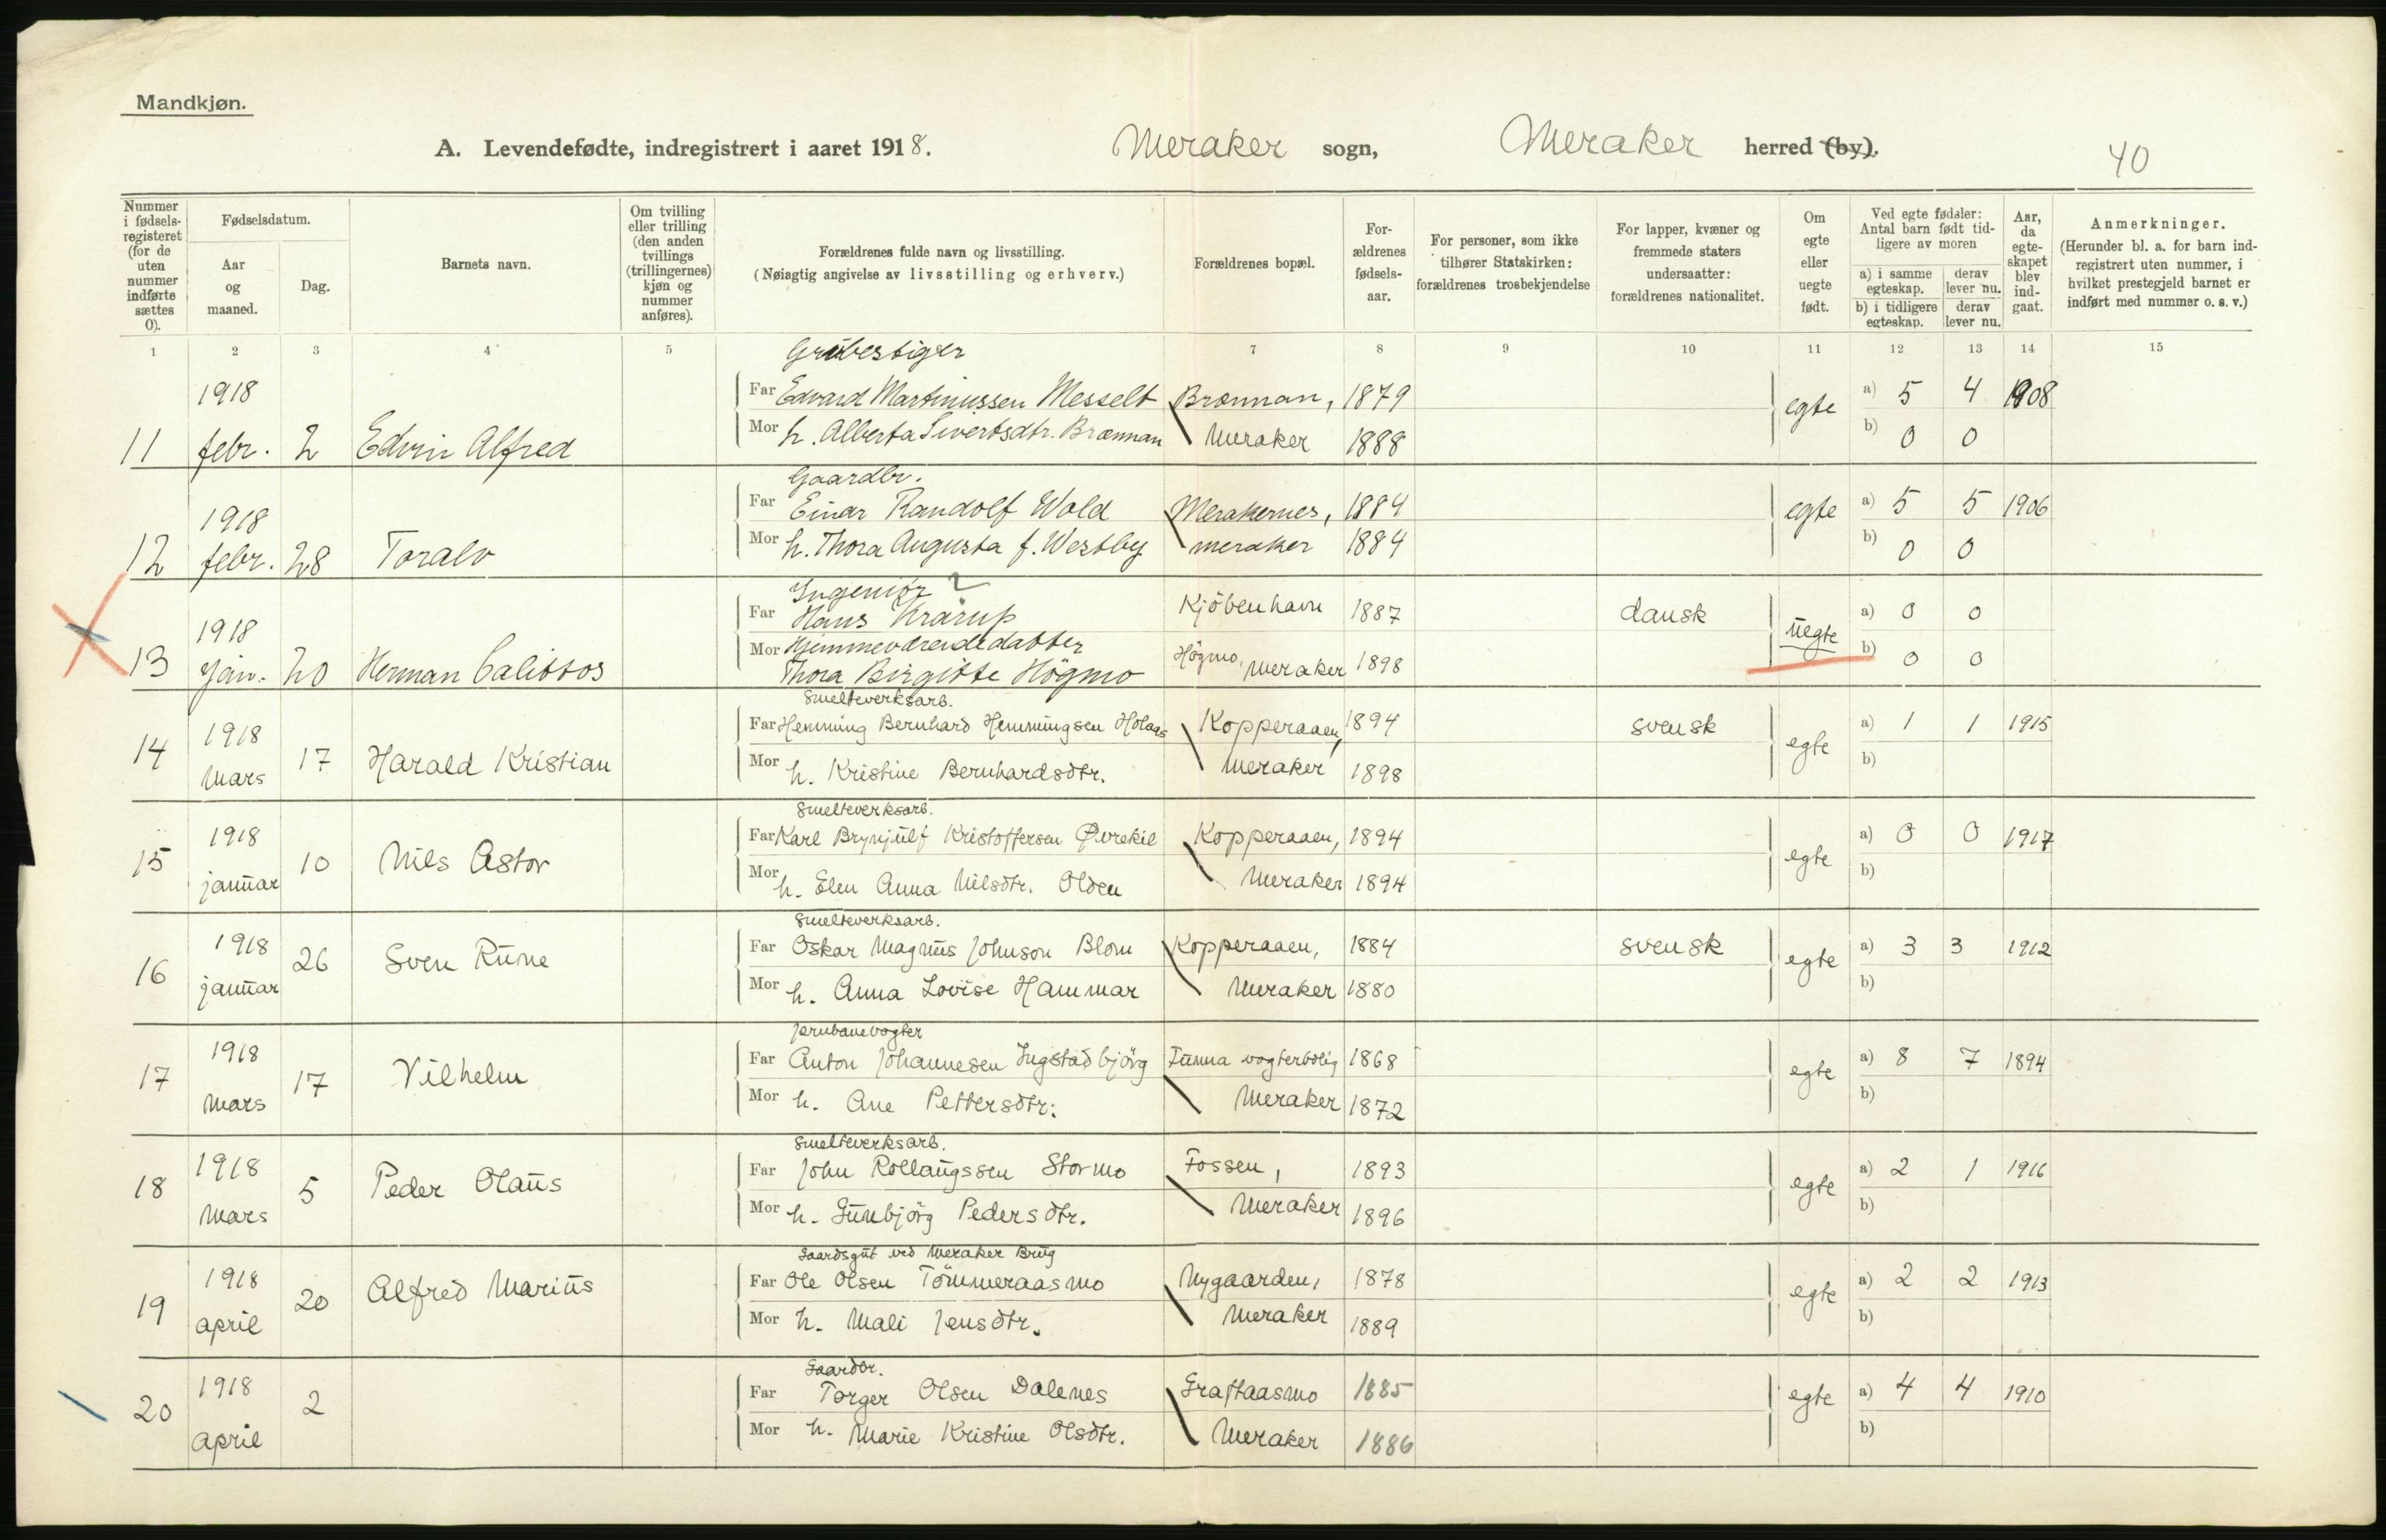 Mandkjøn.
A. Levendefødte, indregistrert i aaret 1918. Meraker sogn, Meraker herred (by).
40
Nummer i fødsels-registeret (for de uten nummer indførte sættes 0).
Fødselsdatum.
Aar og maaned.
Dag.
Barnets navn.
Om tvilling eller trilling (den anden tvillings (trillingernes) kjøn og nummer anføres).
Forældrenes fulde navn og livsstilling.
(Nøiagtig angivelse av livsstilling og erhverv.)
Forældrenes bopæl.
For-ældrenes fødsels-aar.
For personer, som ikke tilhører Statskirken: forældrenes trosbekjendelse
For lapper, kvæner og fremmede staters undersaatter: forældrenes nationalitet.
Om egte eller uegte født.
Ved egte fødsler: Antal barn født tid-ligere av moren
a) i samme egteskap. derav lever nu.
b) i tidligere egteskap. derav lever nu.
Aar, da egte-skapet blev ind-gaat.
Anmerkninger.
(Herunder bl. a. for barn ind-registrert uten nummer, i hvilket prestegjeld barnet er indført med nummer o. s. v.)
1 2 3 4 5 7 8 9 10 11 12 13 14 15
Grubestiger
1918 Far Edvard Martinussen Messelt Brænnan, 1879 egte a) 5 4 1908
11 febr. 2 Edvin Alfred Mor h. Alberta Sivertsdtr. Brænnan Meraker 1888 b) 0 0
Gaardbr.
1918 Far Einar Randolf Wold Merakernes, 1884 egte a) 5 5 1906
12 febr. 28 Toralv Mor h. Thora Augusta f. Westby meraker 1884 b) 0 0
Ingeniør ?
1918 Far Hans Krarup Kjöbenhavn 1887 dansk uegte a) 0 0
Mor Hjemmeværende datter
13 jan. 20 Herman Calittos Thora Birgitte Högmo Högmo, Meraker 1898 b) 0 0
Smelteverksarb.
14 1918 Far Henning Bernhard Henningsen Holaas Kopperaaen, 1894 svensk egte a) 1 1 1915
Mars 17 Harald Kristian Mor h. Kristine Bernhardsdtr. Meraker 1898 b)
Smelteverksarb.
15 1918 Far Karl Brynjulf Kristoffersen Øvrekil Kopperaaen, 1894 egte a) 0 0 1917
januar 10 Nils Astor Mor h. Elen Anna Nilsdtr. Olden Meraker 1894 b)
Smelteverksarb.
16 1918 Far Oskar Magnus Johnson Blom Kopperaaen, 1884 svensk egte a) 3 3 1912
januar 26 Sven Rune Mor h. Anna Lovise Hammar Meraker 1880 b)
Jernbanevogter
17 1918 Far Anton Johannesen Ingstadbjörg Funna vogterbolig 1868 egte a) 8 7 1894
Mars 17 Vilhelm Mor h. Ane Pettersdtr. Meraker 1872 b)
Smelteverksarb.
18 1918 Far John Rollaugssen Stormo Fossen, 1893 egte a) 2 1 1916
Mars 5 Peder Olaus Mor h. Gunbjörg Pedersdtr. Meraker 1896 b)
Gaardsgut ved Meraker Brug
19 1918 Far Ole Olsen Tömmeraasmo Nygaarden, 1878 egte a) 2 2 1913
april 20 Alfred Marius Mor h. Mali Jensdtr. Meraker 1889 b)
Gaardbr.
20 1918 Far Torger Olsen Dalenes Graftaasmo 1885 egte a) 4 4 1910
april 2 Mor h. Marie Kristine Olsdtr. Meraker 1886 b)